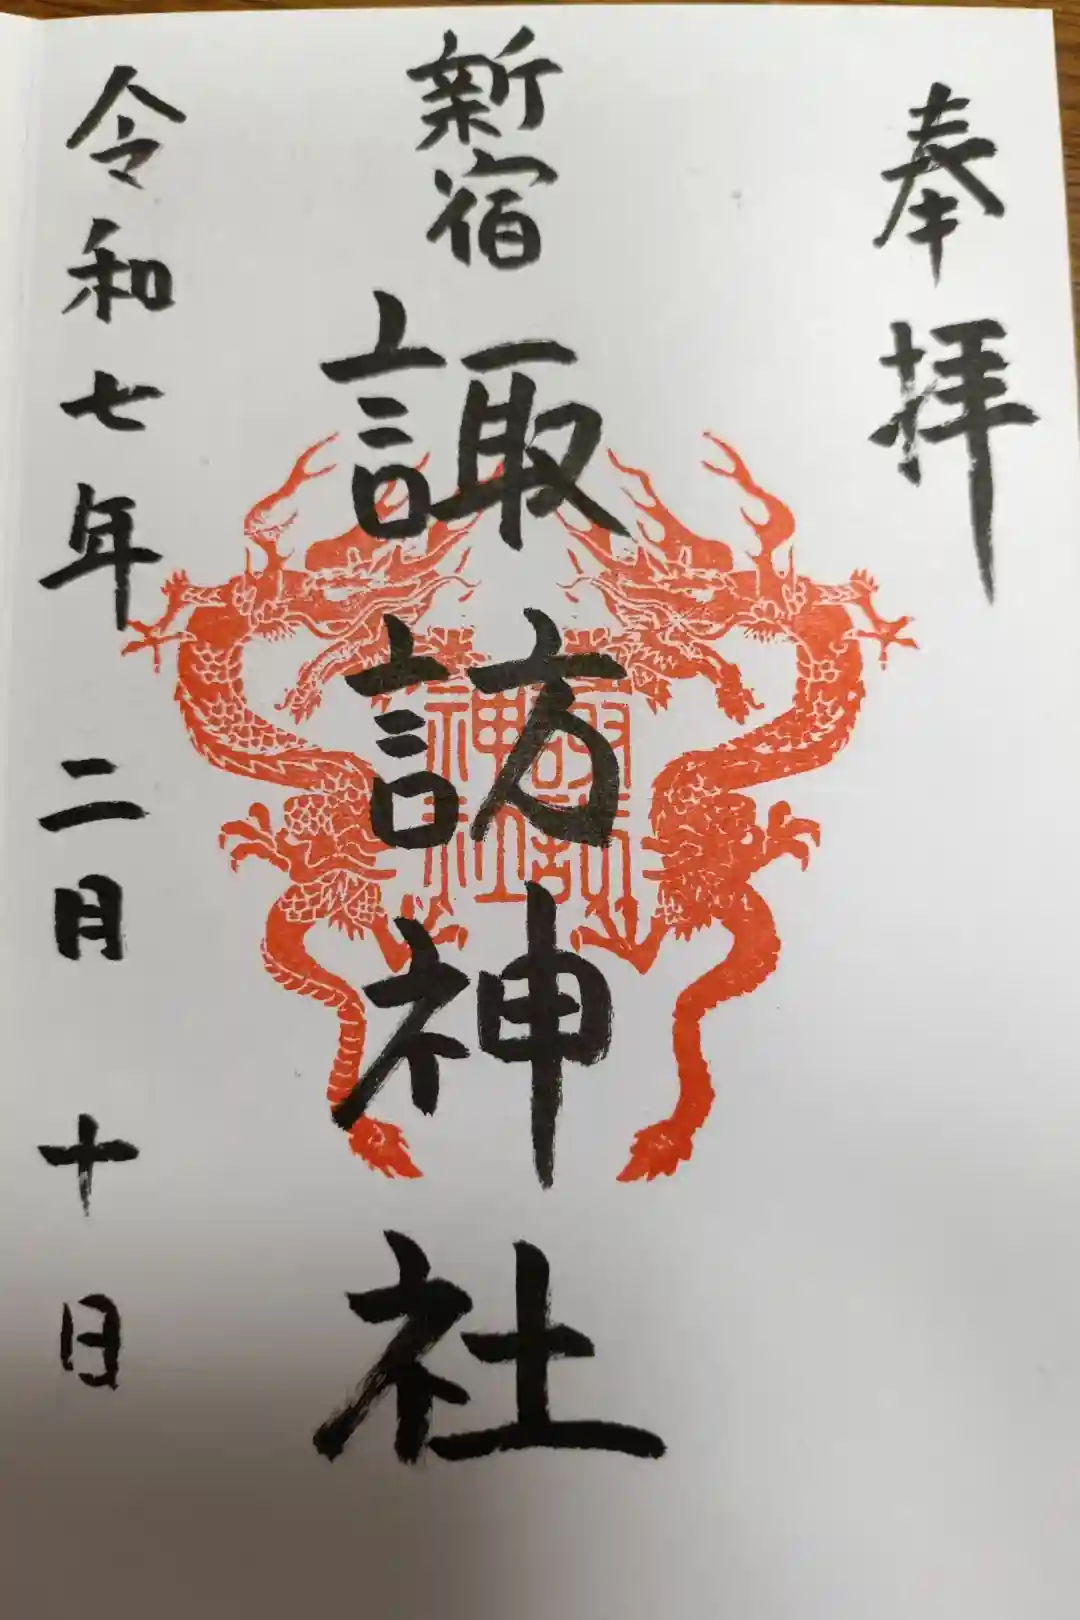 奉拝
新宿
諏訪神社
諏訪
神社
令和七年二月十日